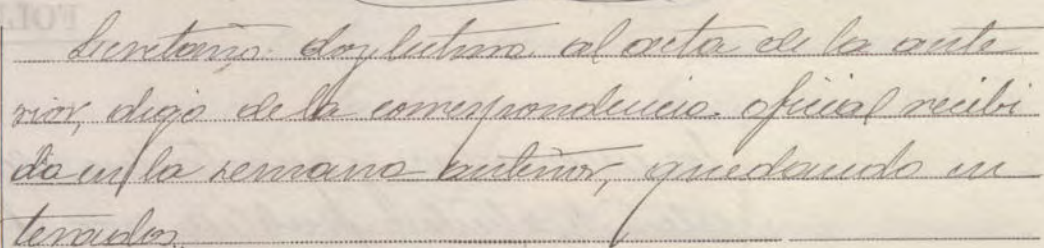 Secretario doy lectura al acta de la ante
rior, digo de la correspondencia oficial recibi
da en la semana anterior, quedando en
terados.